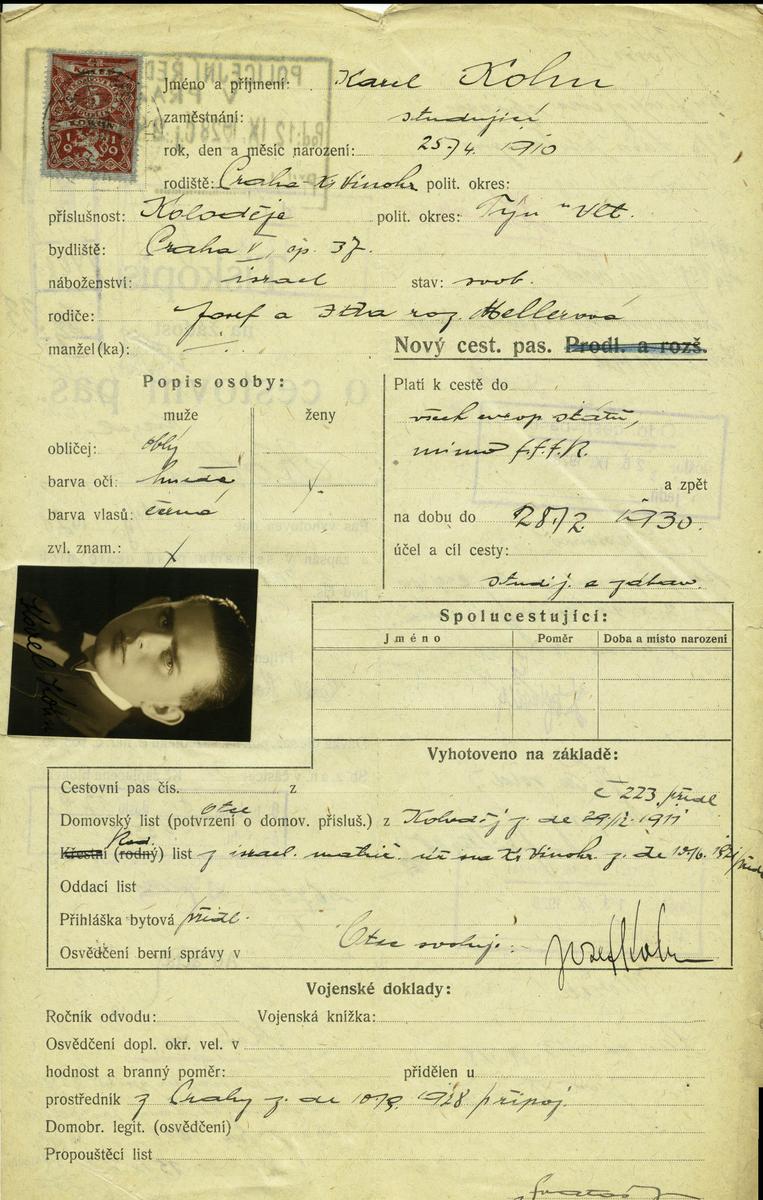 Jméno a příjmení: Karel Kohn
zaměstnání: studující
rok, den a měsíc narození: 25/4. 1910
rodiště: Praha-XI Vinohr polit. okres:
příslušnost: Koloděje polit. okres: Týn n Vlt.
bydliště: Praha V, čp. 37.
náboženství: israel stav: svob.
rodiče: Josef a roz. Hellerová
manžel(ka):
Nový cest. pas. Prodl. a rozš.
Popis osoby:
muže ženy
obličej: oblý
barva očí: hnědá
barva vlasů: černá
zvl. znam.: x
Platí k cestě do
všech evrop států,
mimo
a zpět
na dobu do 28/2. 1930.
účel a cíl cesty:
studij. a zábav.
Karel Kohn
Spolucestující:
Jméno Poměr Doba a místo narození
Vyhotoveno na základě:
Cestovní pas čís. z
č 223 předl
otce
Domovský list (potvrzení o domov. přísluš.) z Koloděj z. de 1911
Rod.
Křestní (rodný) list z israel. matrič. úř na Kr Vinohr. z. de
Oddací list
Přihláška bytová předl.
Osvědčení berní správy v
Otec svoluje: Josef Kohn
Vojenské doklady:
Ročník odvodu: Vojenská knížka:
Osvědčení dopl. okr. vel. v
hodnost a branný poměr: přidělen u
prostředník z Prahy z. de 1928 připoj.
Domobr. legit. (osvědčení)
Propouštěcí list